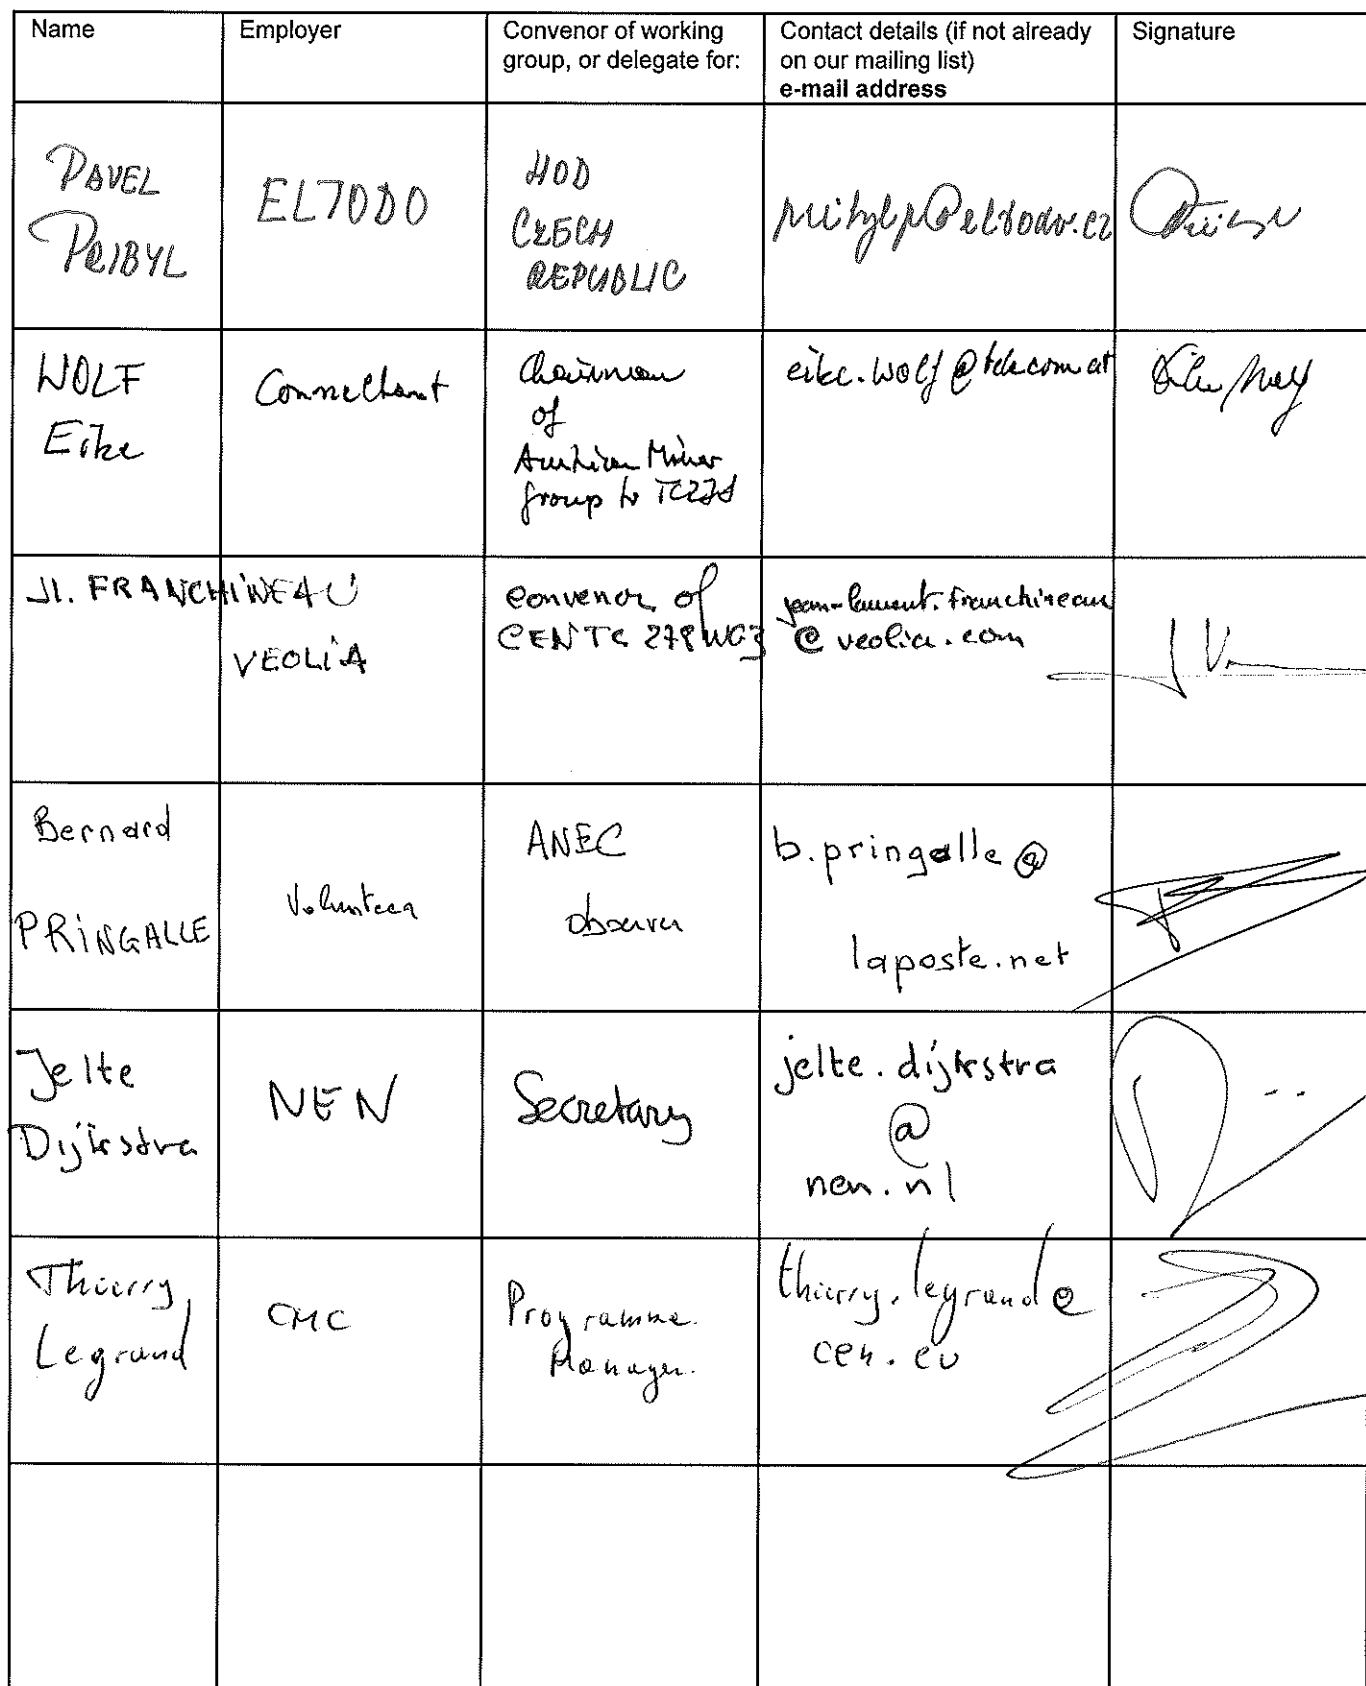 Name
Employer
Convenor of working
group, or delegate for:
Contact details (if not already
on our mailing list)
e-mail address
Signature
PAVEL
PRIBYL
ELTODO
HOD
CZECH
REPUBLIC
pribylp@eltodo.cz
WOLF
Eike
Consultant
Chairman
of
Austrian Mirror
group to TC278
eike.wolf@telecom.at
Jl. FRANCHINEAU
VEOLIA
convenor of
CEN TC 278 WG3
jean-laurent.franchineau
@ veolia.com
Bernard
PRINGALLE
Volunteer
ANEC
observer
b.pringalle @
laposte.net
Jelte
Dijkstra
NEN
Secretary
jelte.dijkstra
@
nen.nl
Thierry
Legrand
CMC
Programme
Manager.
thierry.legrand@
cen.eu